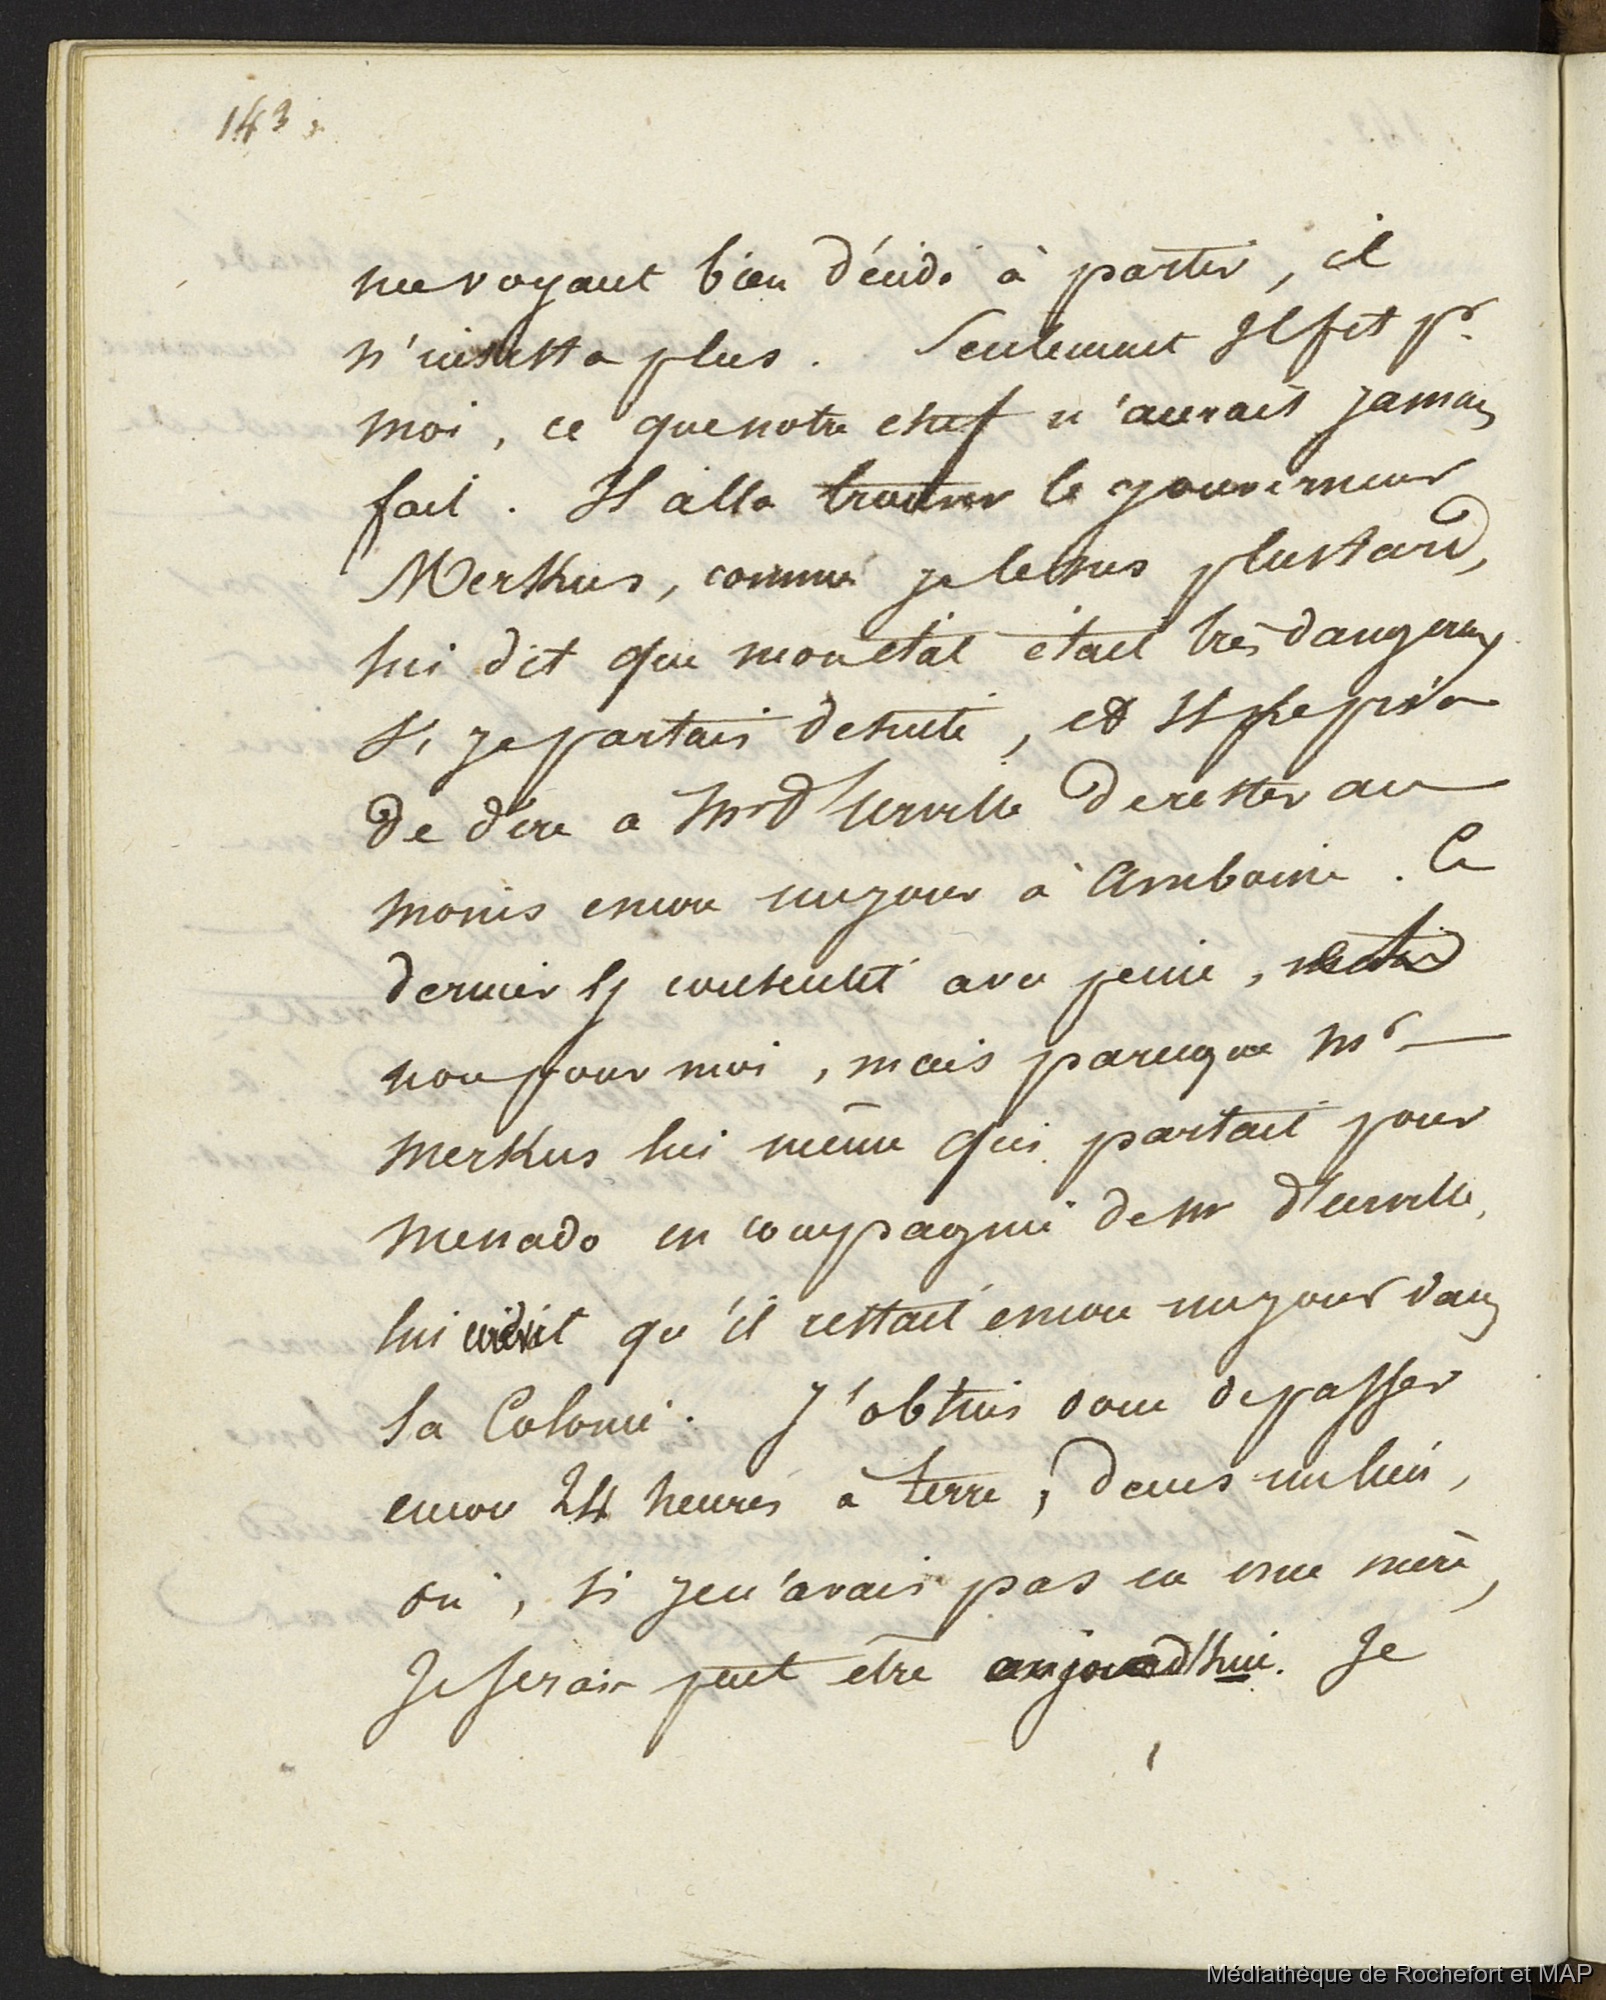 143.
me voyant bien décidé à partir, il
n'insista plus. Seulement Il fit pr.
moi, ce que notre chef n'aurait jamais
fait. Il alla trouver le gouverneur
Merkus, comme je le sus plus tard,
lui dit que mon état était très dangereux
si je partais de suite, et Il le pria
de dire a Mr d'Urville de rester au
moins encore un jour à Amboine. Ce
dernier y consentit avec peine,
non pour moi, mais parceque Mr
Merkus lui même qui partait pour
Menado en compagnie de Mr d'Urville,
lui qu'il restait encore un jour dans
sa Colonie. J'obtins donc de passer
encore 24 heures à terre, dans un lieu,
où, si je n'avais pas eu une mère,
Je serais peut être aujourd'hui. Je
Médiathèque de Rochefort et MAP